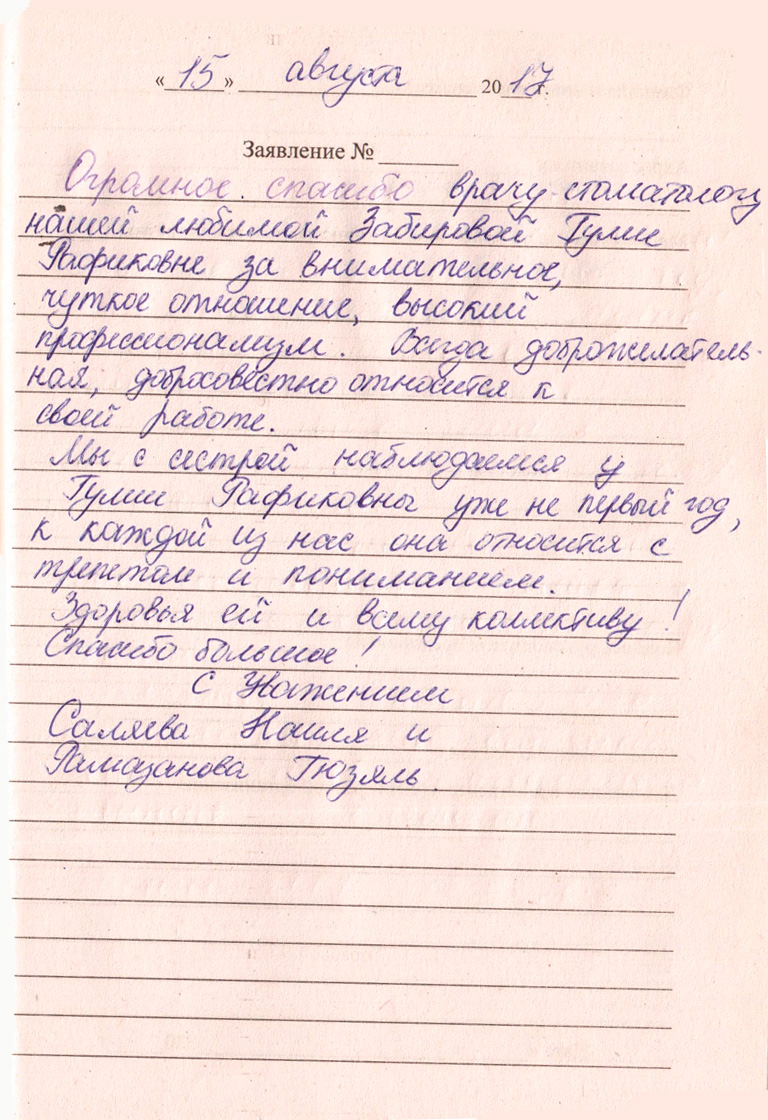 « 15 » августа 2017 г.
Заявление № ______
Огромное спасибо врачу-стоматологу
нашей любимой Забировой Гулие
Рафиковне за внимательное,
чуткое отношение, высокий
профессионализм. Всегда доброжелатель-
ная, добросовестно относится к
своей работе.
Мы с сестрой наблюдаемся у
Гулии Рафиковны уже не первый год,
к каждой из нас она относится с
трепетом и пониманием.
Здоровья ей и всему коллективу!
Спасибо большое!
С Уважением
Саляева Наиля и
Рамазанова Гюзяль.